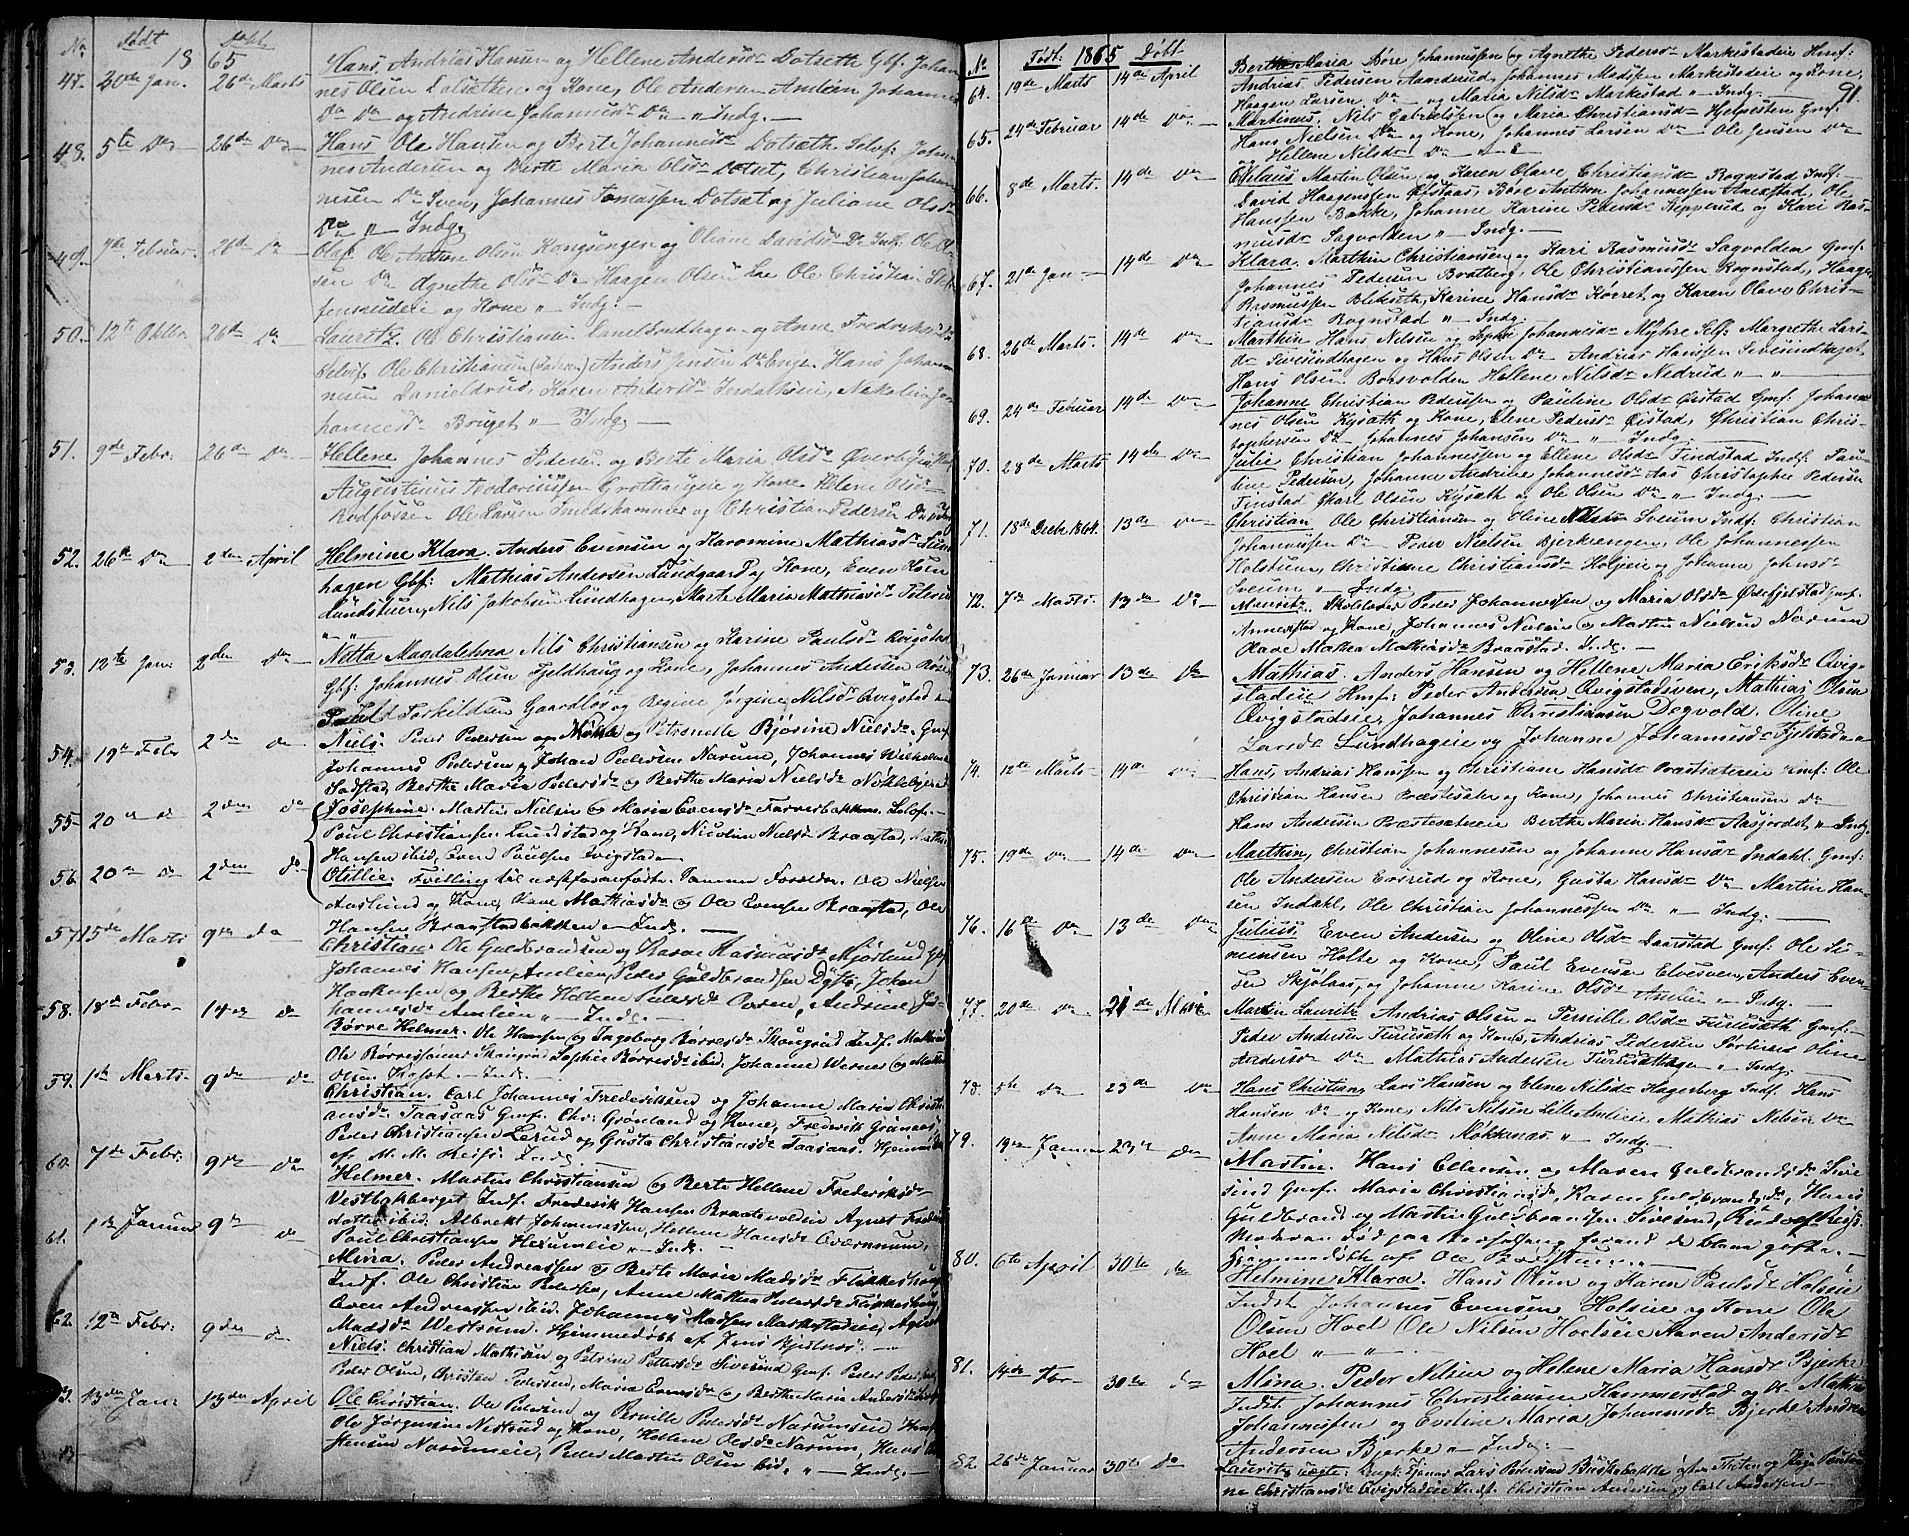 No Født Døbt
18 65
47. 30de Jan. 26de Marts Hans, Andrias Hansen og Hellene Andersdr Dotseth Gbf. Johan
nes Olsen Dotsethen og Kone, Ole Andersen Amlien Johannes
Do Do og Andrine Johannesdr Do " Indg.
48. 5te Do 26de Do Hans Ole Hansen og Berte Johannesdr Dotseth Selvf. Johan
nes Andersen og Berte Maria Olsdr Dotset, Christian Johan
nesen Do Sven, Johannes Tomassen Dotsæt og Juliane Olsdr
Do " Indg.
49. Februar 26de Do Olaf. Ole Anton Olsen Kongsengen og Oliane Davidsdr Do Indf. Ole Ol
sen Do Agnethe Olsdr Do Haagen Olsen Lie Ole Christian Stef
fensrudeie og Kone " Indg.
50. 12te Oktbr. 26de Do Lauretz. Ole Christiansen og Anne Fredriksdr
Selvf. Ole Christiansen (Faderen) Anders Jensen Do Enge Hans Johan
nesen Danieldrud, Karen Andersdr Indalseie, Jo
hannesdr Bruget " Indg.
51. 9de Febr. 26de Do Hellene Johannes Pedersen og Berte Maria Olsdr Øverby
Augustinus Teodoriussen Grøtthaugeie og Kone Helene Olsdr
Rodfossen Ole Larsen Smedshammer og Christian Pedersen Do Indg.
52. 26de Do 2den April Helmine Klara. Anders Evensen og Karomine Mathiasdr Lund
hagen Gbf: Mathias Andersen Lundgaard og Kone, Even Olsen
Lundstuen, Nils Jakobsen Lundhagen, Marte Maria Mathiasdr
" "
53. 12te Jan: 2den Do Netta Magdalehna Nils Christiansen og Karine Paulsdr Qvigstad
Gbf: Johannes Olsen Fjeldhaug og Kone, Johannes Andersen
Paul Torkildsen Gaardløs og Regine Jørgine Nilsdr Qvigstad
54. 19de Febr 2de do Niels. Peder Pedersen og Petronelle Bjørine Nielsdr Gmf.
Johannes Pedersen og Johan Pedersen Narum, Johannes Wilhelm
Sodstad, Berthe Maria Pedersdr og Berthe Maria Nielsdr
55. 20de do 2den do Josephine. Martin Nielsen og Maria Evensdr Farverbakken Selvf.
Poul Christiansen Lundstad og Kone, Nicoline Nielsdr Braastad,
Hansen ibid, Even Poulsen Qvigstad
56. 20de do 2den do Otillie. Tvilling til næstforanførte. Samme Forældre. Ole Nielsen
Aaslund og Kone, Olave Mathiasdr og Ole Evensen Braastad, Ole
Hansen Braastadbakken " Indg.
57. 15de Marts 9de do Christian Ole Guldbrandsen og Karen Rasmusdr Mjørlund
Johannes Hansen Amlien, Peder Guldbrandsen Dyste, Johan
Haakensen og Berthe Helene Pedersdr Paren, Andrine Jo
hannesdr Amlien " Indg.
58. 18de Febr 14de do Børre Helmer. Ole Hansen og Ingeborg Børresdr Skongrud Indf.
Ole Børresen Skongrud Sophie Børresdr ibid. Johanne Wernes og
Olsen " Indg.
59. 1ste Marts 9de do Christian. Carl Johannes Frederiksen og Johanne Maria Christi
ansdr Taasaas Gmf. Chr. Grønland og Kone, Frederik
Peder Christiansen Lerud og Gusta Christiansdr Taasaas. Hjemmed.
af M. M. Indg.
60. 7de Febr. 9de do Helmer. Martin Christiansen og Berte Hellene Frederiksdr
Vestbakberget Indf. Frederik Hansen Braatevolden Agnet Frede
datter ibid. Albrekt Johannessen, Hellene Hansdr Qværnum,
Poul Christiansen " Indg.
61. 1ste Januar 9de do Mina. Peder Andreassen og Berte Marie Madsdr Flikkeshaug
Indf. Ole Christian Pedersen, Anne Mathea Pedersdr Flikkeshaug
Even Andreassen ibid. Johannes Madsen Markestadeie, Agnet
Madsdr Westrum. Hjemmedøbt af Jens
62 12te Febr. 9de do Niels. Christian Mathisen og Petrine Pettersdr Sivesind Gmf. Peder
Peder Olsen, Christen Pedersen, Maria Evensdr og Berthe Maria Andersdr
3. 13de Jan: 13de April Ole Christian. Ole Pedersen og Pernille Pedersdr Narumseie
Ole Jørgensen og Kone, Hellene Olsdr Narum, Hans
stensen Narumeie, Peder Martin Olsen ibid. " Indg.
91.
No Født: 1865 Døbt
64. 19de Marts 14de April Berthe Maria Børe Johannessen og Agnethe Pedersdr Markestadeie Hmf:
Andrias Pedersen Aamderud, Johannes Madsen Markestadeie og Kone,
Haagen Larsen Do og Maria Nilsdr Markestad " Indg.
65. 24de Februar 14de Do Martinus, Nils Gabrielsen og Maria Christiansdr Hjelpesten Gmf.
Hans Nielsen Do og Kone, Johannes Larsen Do Ole Jensen Do
og Hellene Nilsdr Do
66. 8de Marts. 14de Do Martin Olsen og Karen Olave Christiansdr Rognstad Indf.
David Haagenssen Børe Anthon Johannessen Ole
Hanssen Bakke, Johanne Karine Pedersdr Kepperud og Kari Ras
musdr Sagvolden " Indg.
67. 21de Jan 14de Do Klara. Marthin Christiansen og Kari Rasmusdr Sagvolden Gmf.
Johannes Pedersen Bratberg, Ole Christianssen Rognstad, Haagen
Rasmussen Blekseth, Karine Hansdr Kørret og Karen Olave Chris
tiansdr Rognstad " Indg.
68. 26de Marts. 14de Do Marthin Hans Nilsen og Sophie Johannesdr Myhre Self: Margrethe Lars
dr Sivesindhagen og Hans Olsen Do Andrias Hanssen Sivesindhaget
Hans Olsen Borsvolden Hellene Nilsdr Nedrud " "
69. 24de Februar 14de Do Johanne Christian Pederssen og Pauline Olsdr Gmf. Johan
nes Olsen Kysæth og Kone, Elene Pedersdr Øistad, Christian Chris
tophersen Do Johannes Johansen Do " Indg.
70. 28de Marts 14de Do Julie Christian Johannessen og Ellene Olsdr Findstad Indf. Pau
line Pedersen, Johanne Andrine Johannesdr Aas Christopher Pedersen
Finstad Carl Olsen Kysæth og Ole Olsen Do " Indg.
71. 18de Decbr 1864. 13de Do Christian Ole Christiansen og Oline Nilsdr Sveum Indf: Christian
Johannessen Do Peder Nielsen Bjerkeengen, Ole Johannessen
Holstuen, Christiane Christiansdr Holseie og Johanne Johnsdr
Sveum " Indg.
72. 7de Marts 13de Do Mauritz. Skolelærer Peder Johannessen og Maria Olsdr Østefjelstad Gmf.
og Kone, Johannes Nielsen og Martin Nielsen Narum
Olave Mathea Mathiasdr Braastad. Indg.
73. 26de Januar 13de Do Mathias. Anders Hansen og Hellene Maria Eriksdr Qvig
stadeie Hmf: Peder Andersen Qvigstadsven, Mathias Olsen
Qvigstadeie, Johannes Christiansen Degvold. Oline
Larsdr Lundhageie og Johanne Johannesdr Fjelstad
74. 12te Marts 14de Do Hans, Andrias Hanssen og Christiane Hansdr Præstsætereie Hmf: Ole
Christian Hansen Præstesæter og Kone, Johannes Christiansen Do
Hans Andersen Præstesætereie Berthe Maria Hansdr Aasjordet " Indg.
75. 19de Do 14de Do Marthin, Christian Johannesen og Johanne Hansdr Indahl. Gmf:
Ole Andersen Evsrud og Kone, Gusta Hansdr Do Martin Han
sen Indahl, Ole Christian Johannessen Do " Indg.
76. 16de Do 13de Do Julius Even Andersen og Oline Olsdr Daarstad Gmf. Ole Si
mensen Holte og Kone, Paul Evensen Elvesven, Anders Even
sen Skjølaas og Johanne Karine Olsdr Amlien " Indg.
77. 20de Do 21de Mai Martin Lauritz Andrias Olsen og Pernille Olsdr Furuseth Gmf.
Peder Andersen Furuseth og Kone, Andrias Pedersen Oline
Andersdr Do Mathias Andersen Furusethhagen " Indg.
78. 5te Do 23de Do Hans Christian, Lars Hansen og Elene Nilsdr Hagerberg Indf. Hans
Hansen Do og Kone, Nils Nilsen Lille Amlieie Mathias Nilsen Do
Anne Maria Nilsdr Mokkenæs " Indg.
79. 19de Januar 23de do Martin. Hans Ellensen og Maren Guldbrandsdr Sive
sind Gmf. Maria Christiansdr, Karen Guldbrandsdr, Hans
Guldbrands. og Martin Guldbrandsen Sivesind, Rudolf
Moderen Død paa Barselseng forend de bleve gifte.
Hjemmedøbt af Ole
80. 6te April 30te do Helmine Klara. Hans Olsen og Karen Paulsdr Holseie
Indst. Johannes Evensen Holseie og Kone Ole
Olsen Hoel Ole Nilsen Hoelseie Karen Andersdr
Hoel " "
81. 14de Fbr 30te do Mina. Peder Nilsen og Helene Maria Hansdr Bjerke
Indst. Johannes Christiansen Hammerstad og Do Mathias
Johannessen og Eveline Maria Johannesdr Bjerke Andreas
Andersen Bjerke " Indg.
82. 26de Januar 30te do Lauritz uægte: Ungk. Tjener Lars Pedersen af Thoten og Pige Pauli
ne Christiansdr Qvigstadeie Indf. Christian Andersen og Carl Andersen